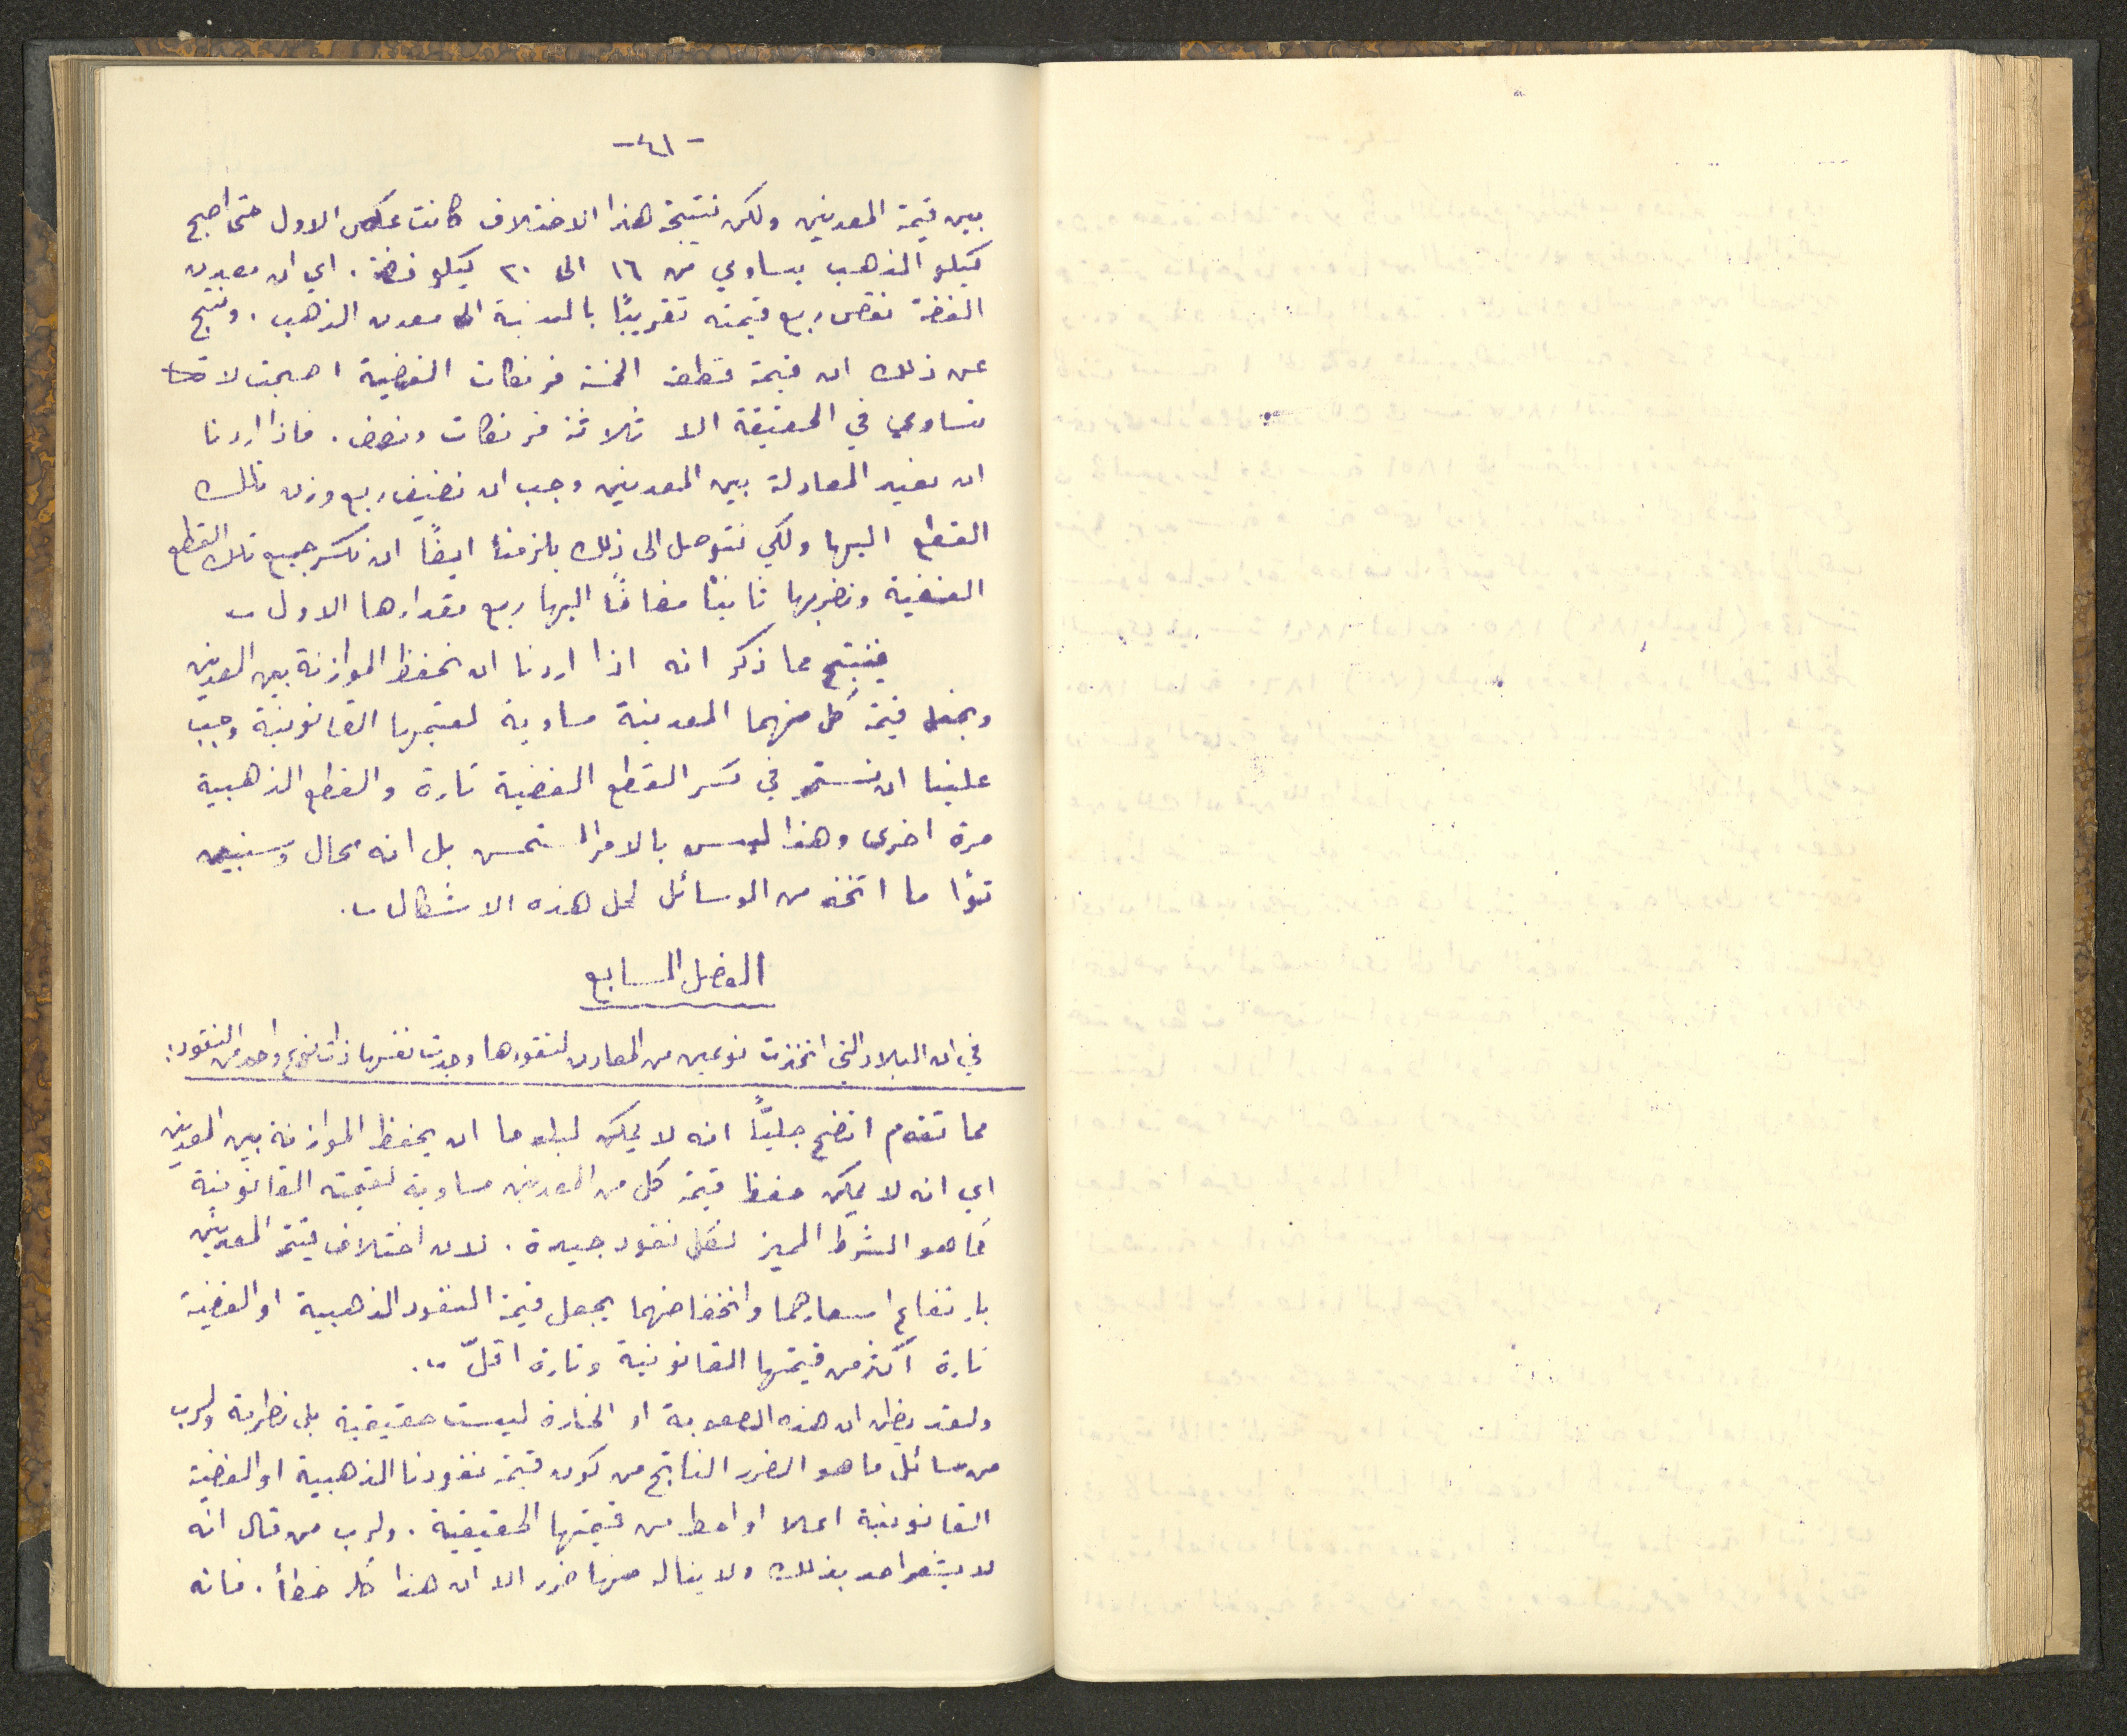 -٤١-
بين قيمة المعدنين ولكن نتيجة هذا الاختلاف كانت عكس الاول حتى اصبح
كيلو الذهب يساوي من ١٦ الى ٢٠ كيلو فضة . اي ان معدن
الفضة نقص ربع قيمته تقريبًا بالنسبة الى معدن الذهب . ونتج
عن ذلك ان قيمة قطعة الخمسة فرنكات الفضية اصبحت لا
تساوي في الحقيقة الا ثلاثة فرنكات ونصف . فاذا اردنا
ان نعيد المعادلة بين المعدنين وجب ان نضيف ربع وزن تلك
القطع اليها ولكي نتوصل الى ذلك يلزمنا ايضًا ان نكسر جميع تلك القطع
الفضية ونضربها ثانيًا مضافًا اليها ربع مقدارها الاول
فينتج مما ذكر انه اذا اردنا ان نحفظ الموازنة بين المعدنين
ونجعل قيمة كل منهما المعدنية مساوية لقيمتها القانونية وجب
علينا ان نستمر في كسر القطع الفضية تارة والقطع الذهبية
مرة اخرى وهذا ليس بالامر المستحسن بل انه محال وسنبين
توًا ما اتخذ من الوسائل لحل هذه الاشكال .
الفصل السابع
في ان البلاد التي اتخذت نوعين من المعادن لنقودها وجدت نفسها ذات نوع واحد من النقود :
مما تقدم اتضح جليًّا انه لا يمكن لبلد ما ان يحفظ الموازنة بين المعدنين
اي انه لا يمكن حفظ قيمة كل من المعدنين مساوية لقيمته القانونية
كما هو الشرط المميز لكل نقود جيدة . لان اختلاف قيمة المعدنين
بارتفاع اسعارهما وانخفاضهما يجعل قيمة النقود الذهبية او الفضية
تارة اكثر من قيمتها القانونية وتارة اقلّ .
ولقد يظن ان هذه الصعوبة او الخسارة ليست حقيقية بل نظرية ولرب
من سائل ما هو الضرر الناتج من كون قيمة نقودنا الذهبية او الفضية
القانونية اعلا او احط من قيمتها الحقيقية . ولرب من قال انه
لا يشعر احد بذلك ولا يناله منها ضرر الا ان هذا كله خطأ . فانه